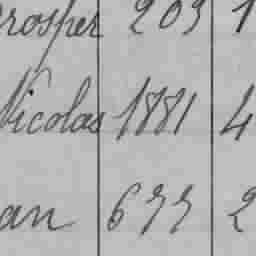 rosper 203 1
Nicolas 1881 4
an 677 2